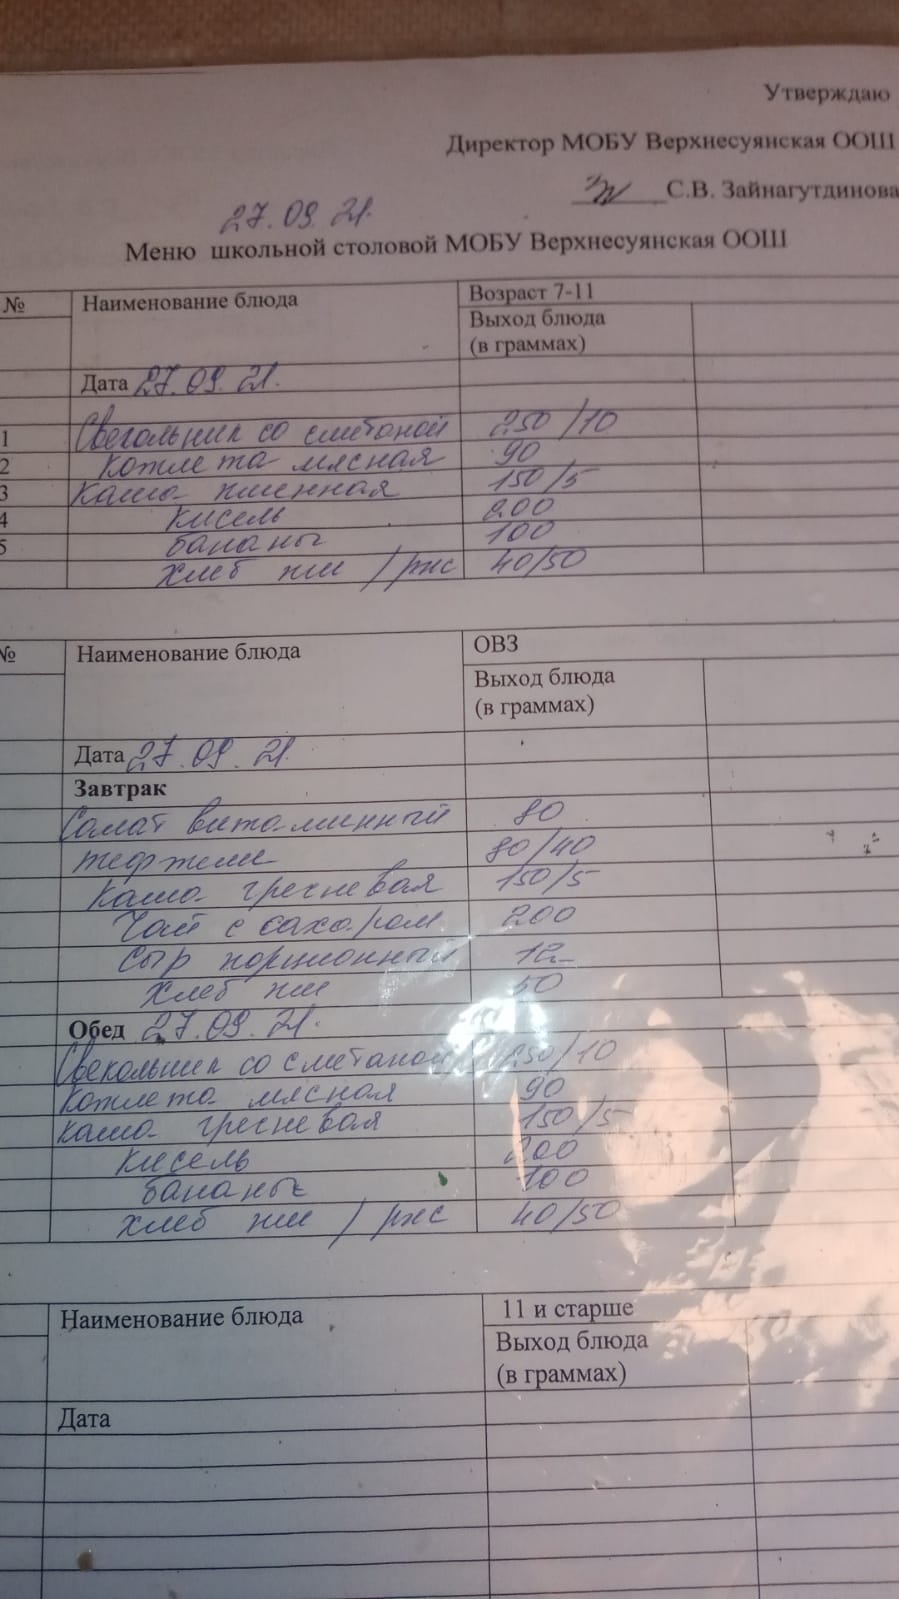 Утверждаю
Директор МОБУ Верхнесуянская ООШ
С.В. Зайнагутдинова
27.09.21.
Меню школьной столовой МОБУ Верхнесуянская ООШ
№ Наименование блюда Возраст 7-11
Выход блюда
(в граммах)
Дата 27.09.21.
1 Свекольник со сметаной 250/10
2 Котлета мясная 90
3 Каша пшенная 150/5
4 Кисель 200
5 бананы 100
Хлеб пш / рж 40/50
№ Наименование блюда ОВЗ
Выход блюда
(в граммах)
Дата 27.09.21.
Завтрак
Салат витаминный 80
тефтели 80/40
Каша гречневая 150/5
Чай с сахаром 200
Сыр порционный 12
Хлеб пш 50
Обед 27.09.21.
Свекольник со сметаной 250/10
Котлета мясная 90
Каша гречневая 150/5
Кисель 200
бананы 100
хлеб пш / рж 40/50
Наименование блюда 11 и старше
Выход блюда
(в граммах)
Дата